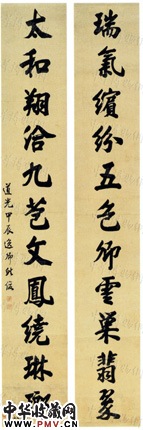 瑞氣繽紛五色卿雲巢翡翠
太和翔洽九苞文鳳繞琳瑯
道光甲辰
中华收藏网
WWW.PMV.CN